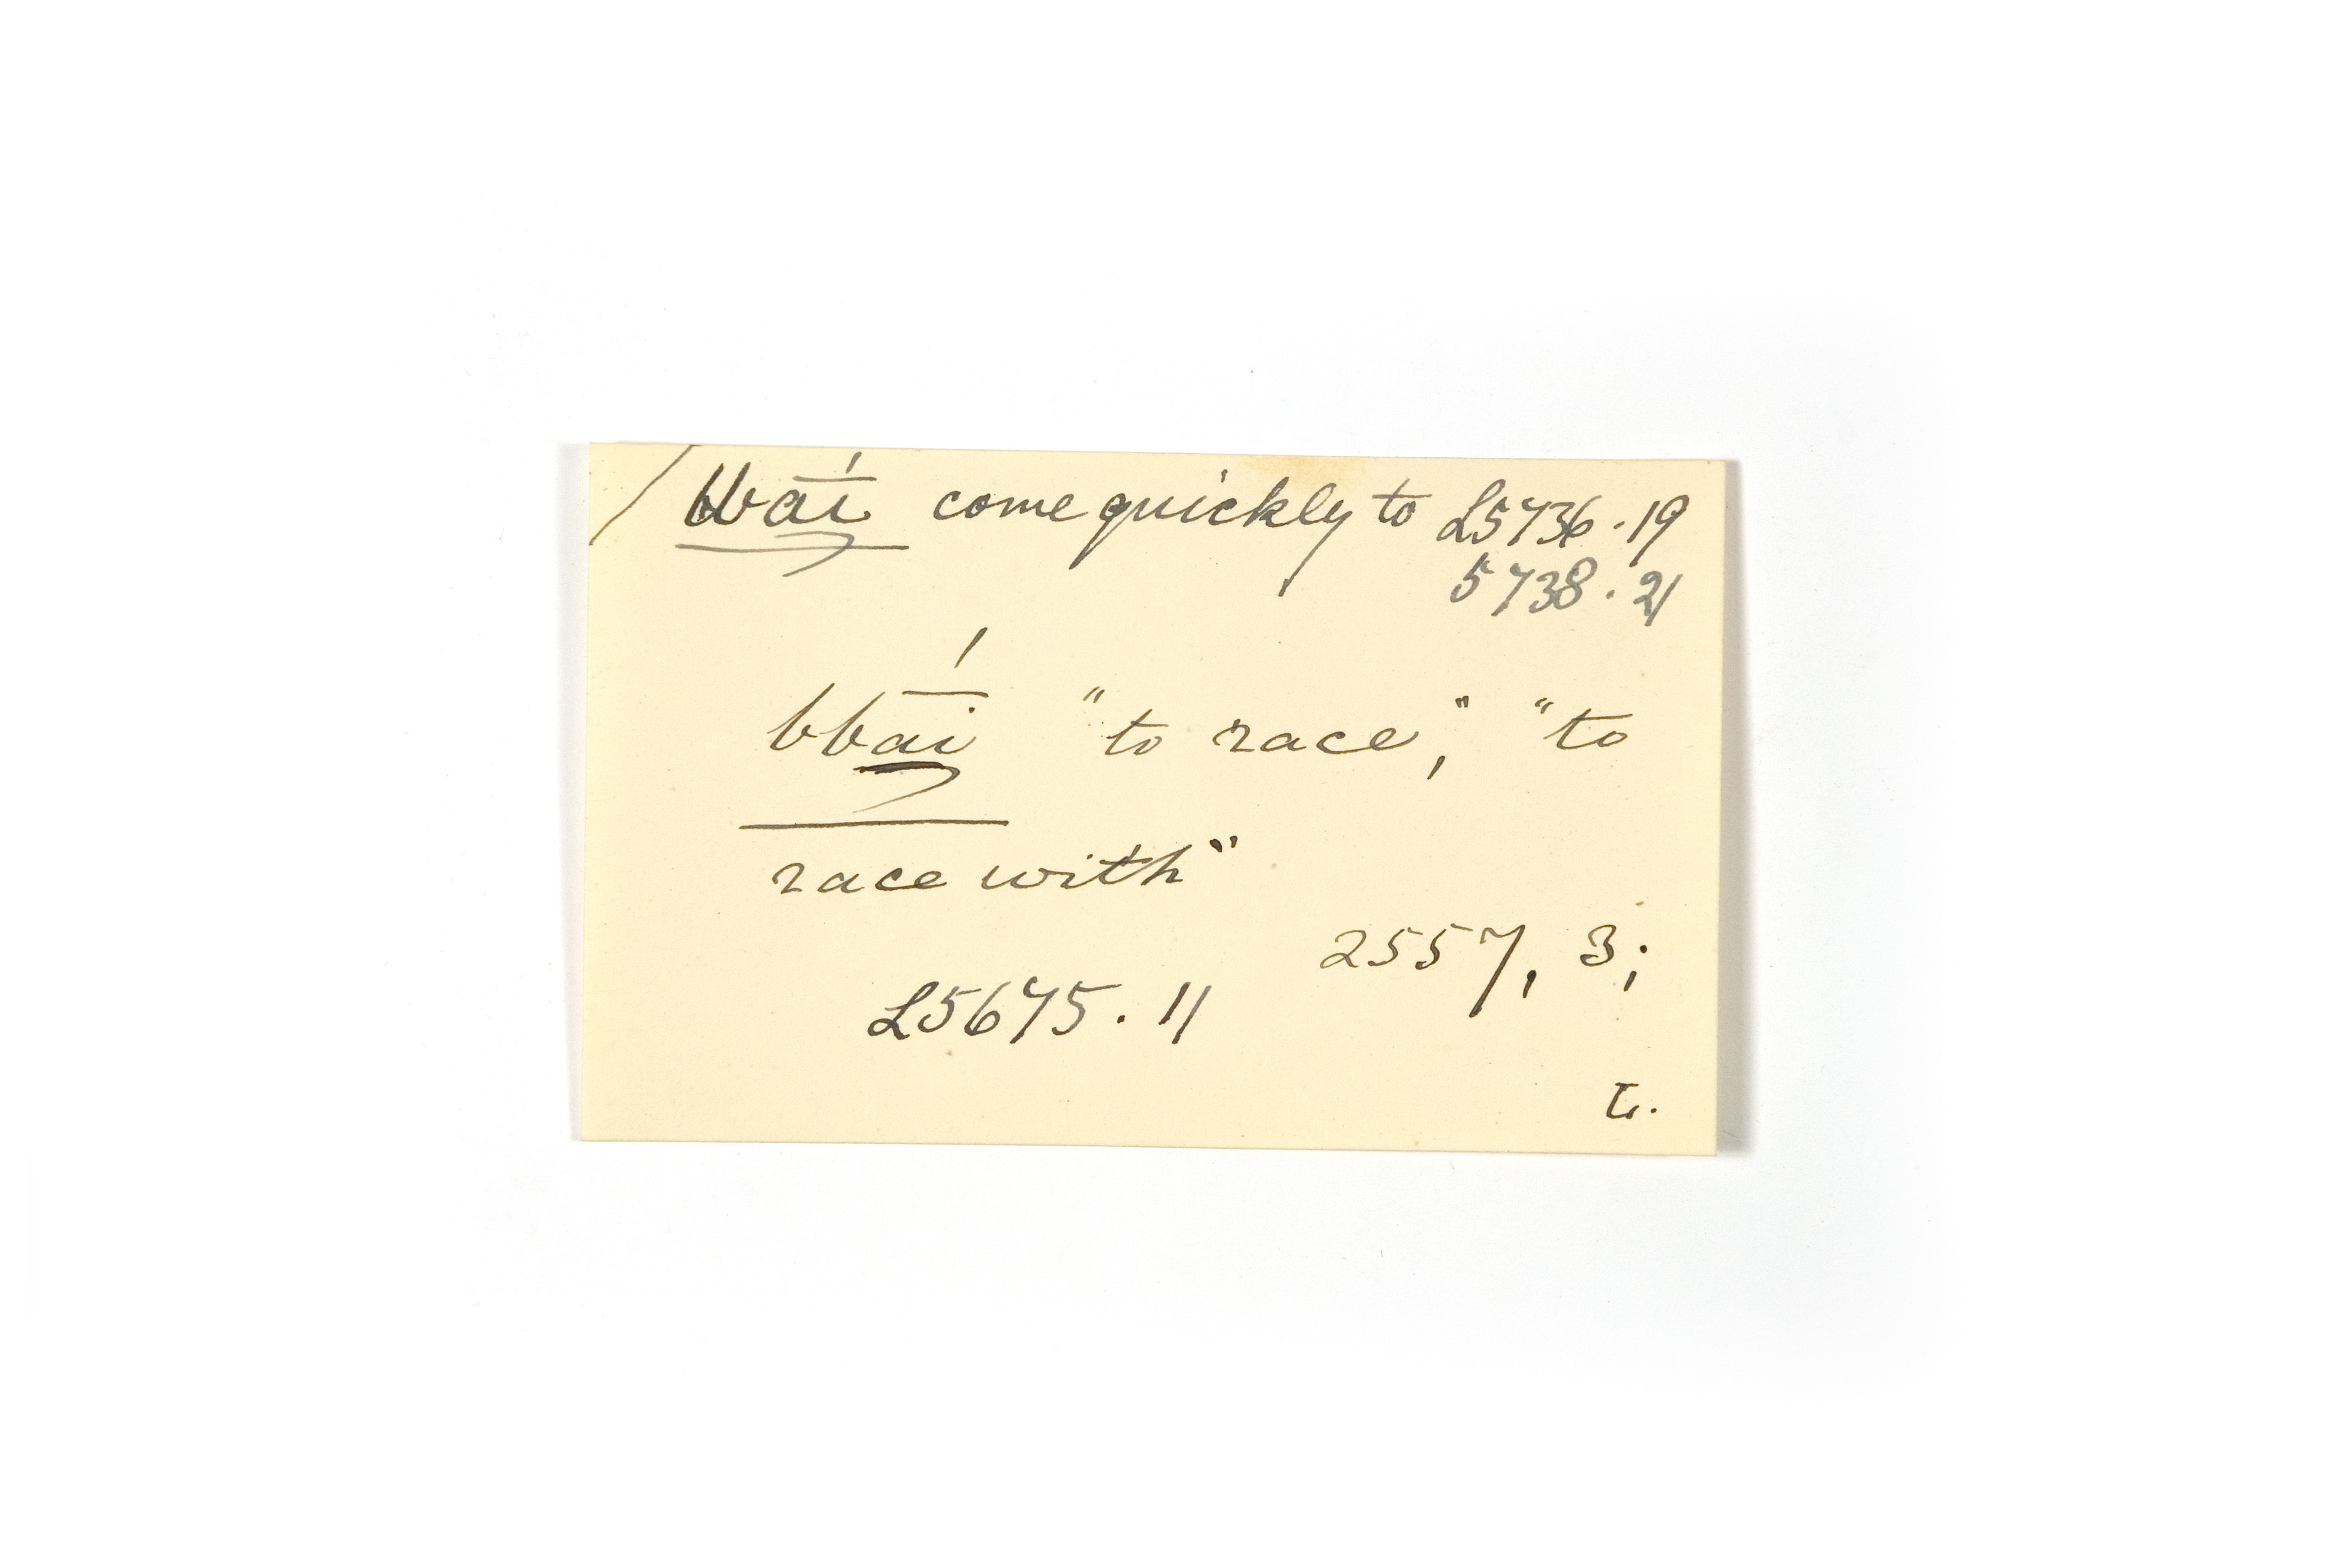 bbāí come quickly to L5736.19
5738.21
bbāí "to race," "to
race with"
2557, 3;
L5675.11